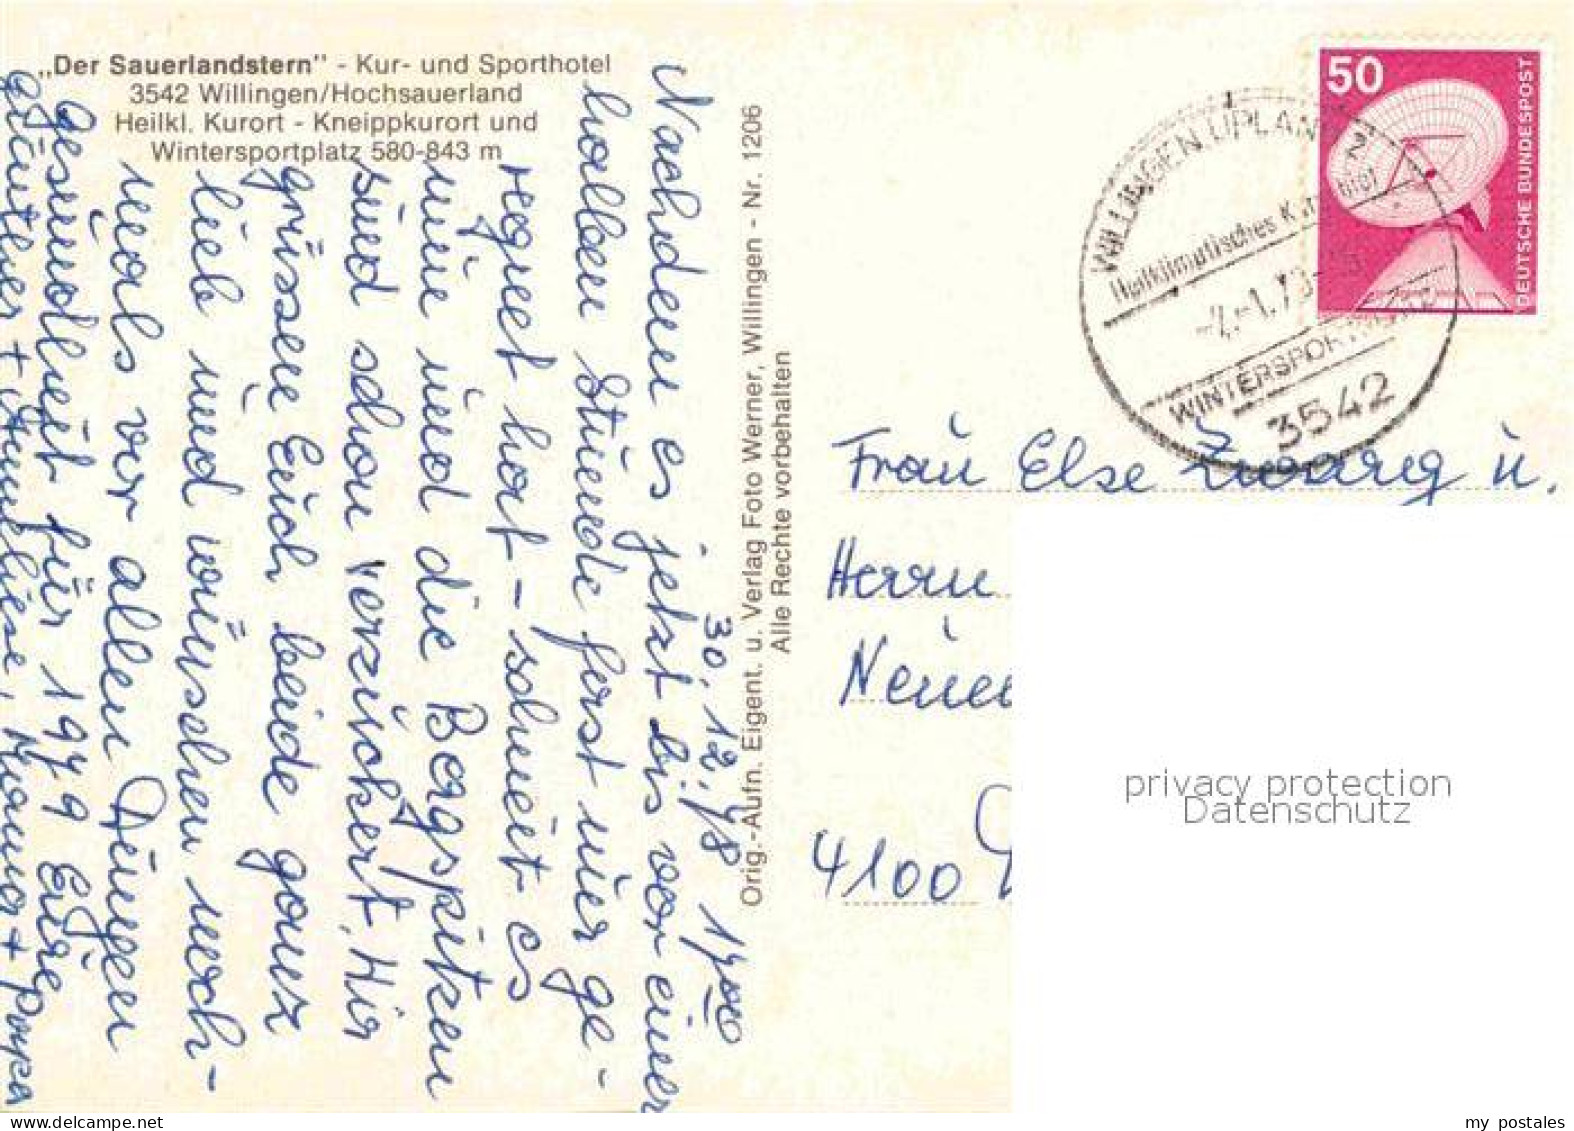 „Der Sauerlandstern" - Kur- und Sporthotel
3542 Willingen/Hochsauerland
Heilkl. Kurort - Kneippkurort und
Wintersportplatz 580-843 m
Orig.-Aufn. Eigent. u. Verlag Foto Werner, Willingen - Nr. 1206
Alle Rechte vorbehalten
30.12.78 17 00
Nachdem es jetzt bis vor einer
halben Stunde fast nur ge-
regnet hat - schneit es
nun und die Bergspitzen
sind schon verzuckert. Wir
grüssen Euch beide ganz
lieb und wünschen noch-
mals vor allen Dingen
Gesundheit für 1979 Eure
Günther + Anneliese, Mama + Papa
50
DEUTSCHE BUNDESPOST
WILLINGEN, UPLAND
Heilklimatisches
WINTERSPORTPLATZ
3542
Frau Else Zwarg u.
Herrn
4100
privacy protection
Datenschutz
my postales